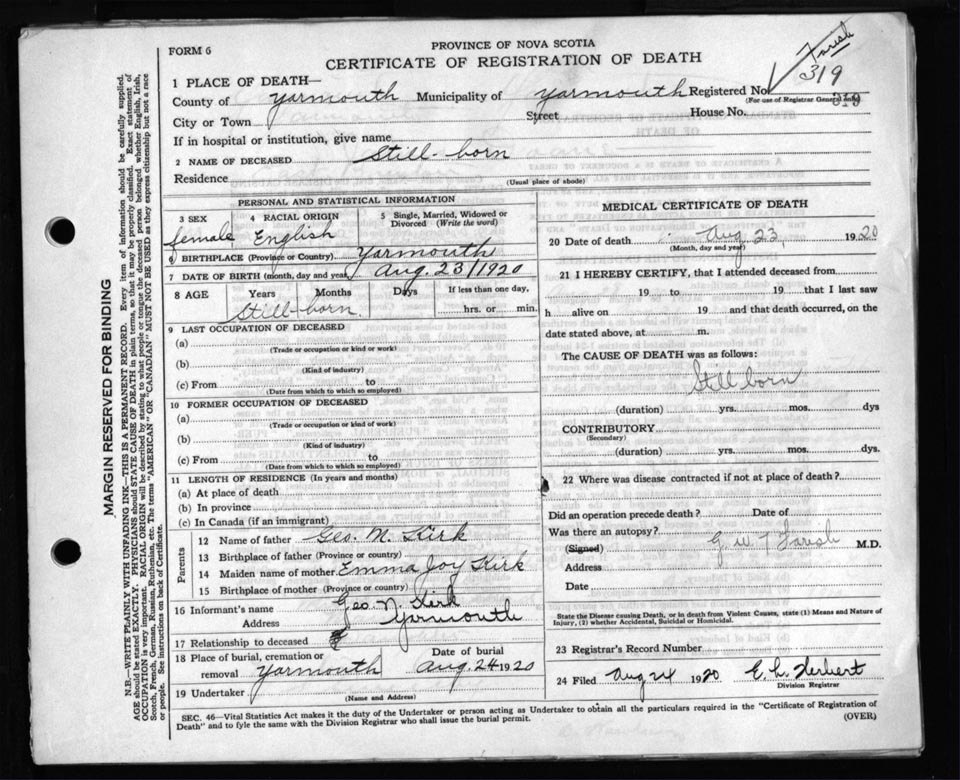 Farish
319
FORM 6
PROVINCE OF NOVA SCOTIA
CERTIFICATE OF REGISTRATION OF DEATH
1 PLACE OF DEATH—
County of Yarmouth Municipality of Yarmouth Registered No.
(For use of Registrar General only)
319
City or Town Street House No.
If in hospital or institution, give name
2 NAME OF DECEASED Still-born
Residence
(Usual place of abode)
PERSONAL AND STATISTICAL INFORMATION
3 SEX 4 RACIAL ORIGIN 5 Single, Married, Widowed or Divorced (Write the word)
female English
6 BIRTHPLACE (Province or Country) Yarmouth
7 DATE OF BIRTH (month, day and year) Aug. 23/1920
8 AGE Years Months Days If less than one day,
Still-born hrs. or min.
9 LAST OCCUPATION OF DECEASED
(a)
(Trade or occupation or kind or work)
(b)
(Kind of industry)
(c) From to
(Date from which to which so employed)
10 FORMER OCCUPATION OF DECEASED
(a)
(Trade or occupation or kind of work)
(b)
(Kind of industry)
(c) From to
(Date from which to which so employed)
11 LENGTH OF RESIDENCE (In years and months)
(a) At place of death
(b) In province
(c) In Canada (if an immigrant)
Parents
12 Name of father Geo. N. Kirk
13 Birthplace of father (Province or country)
14 Maiden name of mother Emma Joy Kirk
15 Birthplace of mother (Province or country)
16 Informant's name Geo. N. Kirk
Address Yarmouth
17 Relationship to deceased
18 Place of burial, cremation or removal Yarmouth Date of burial Aug. 24 1920
19 Undertaker
(Name and Address)
MEDICAL CERTIFICATE OF DEATH
20 Date of death Aug 23, 1920
(Month, day and year)
21 I HEREBY CERTIFY, that I attended deceased from
19 to 19 that I last saw
h alive on 19 and that death occurred, on the
date stated above, at m.
The CAUSE OF DEATH was as follows:
Still born
(duration) yrs. mos. dys
CONTRIBUTORY
(Secondary)
(duration) yrs. mos. dys.
22 Where was disease contracted if not at place of death?
Did an operation precede death? Date of
Was there an autopsy?
(Signed) G. W. T. Farish M.D.
Address
Date
State the Disease causing Death, or in death from Violent Causes, state (1) Means and Nature of
Injury, (2) whether Accidental, Suicidal or Homicidal.
23 Registrar's Record Number
24 Filed Aug 24 1920 E. L. Herbert
Division Registrar
SEC. 46—Vital Statistics Act makes it the duty of the Undertaker or person acting as Undertaker to obtain all the particulars required in the "Certificate of Registration of
Death" and to fyle the same with the Division Registrar who shall issue the burial permit. (OVER)
MARGIN RESERVED FOR BINDING
N.B.—WRITE PLAINLY WITH UNFADING INK—THIS IS A PERMANENT RECORD. Every item of information should be carefully supplied.
AGE should be stated EXACTLY. PHYSICIANS should STATE CAUSE OF DEATH in plain terms, so that it may be properly classified. Exact statement of
OCCUPATION is very important. RACIAL ORIGIN will be described by stating to what people or tongue the deceased person belonged, whether English, Irish,
Scotch, French, German, Russian, Ruthenian, etc. The terms "AMERICAN" OR "CANADIAN" MUST NOT BE USED as they express citizenship but not a race
or people. See instructions on back of Certificate.